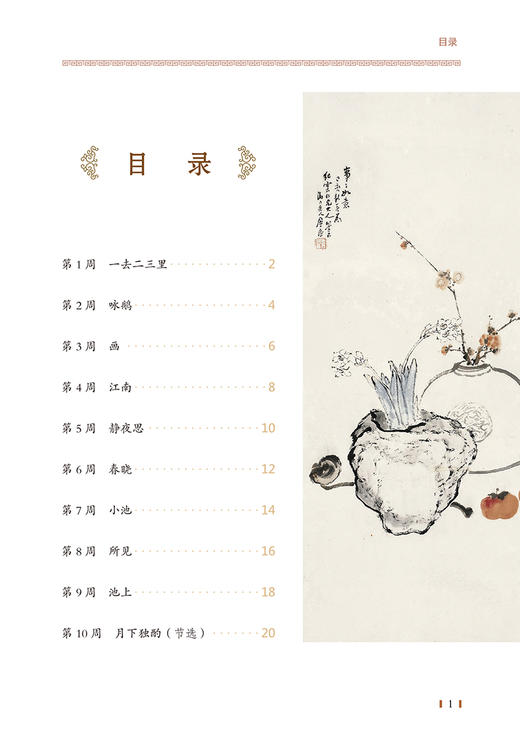 目录
目 录
第 1 周 一去二三里 ············· 2
第 2 周 咏鹅 ·················· 4
第 3 周 画 ··················· 6
第 4 周 江南 ·················· 8
第 5 周 静夜思 ················ 10
第 6 周 春晓 ·················· 12
第 7 周 小池 ·················· 14
第 8 周 所见 ·················· 16
第 9 周 池上 ·················· 18
第 10 周 月下独酌（节选） ······· 20
1